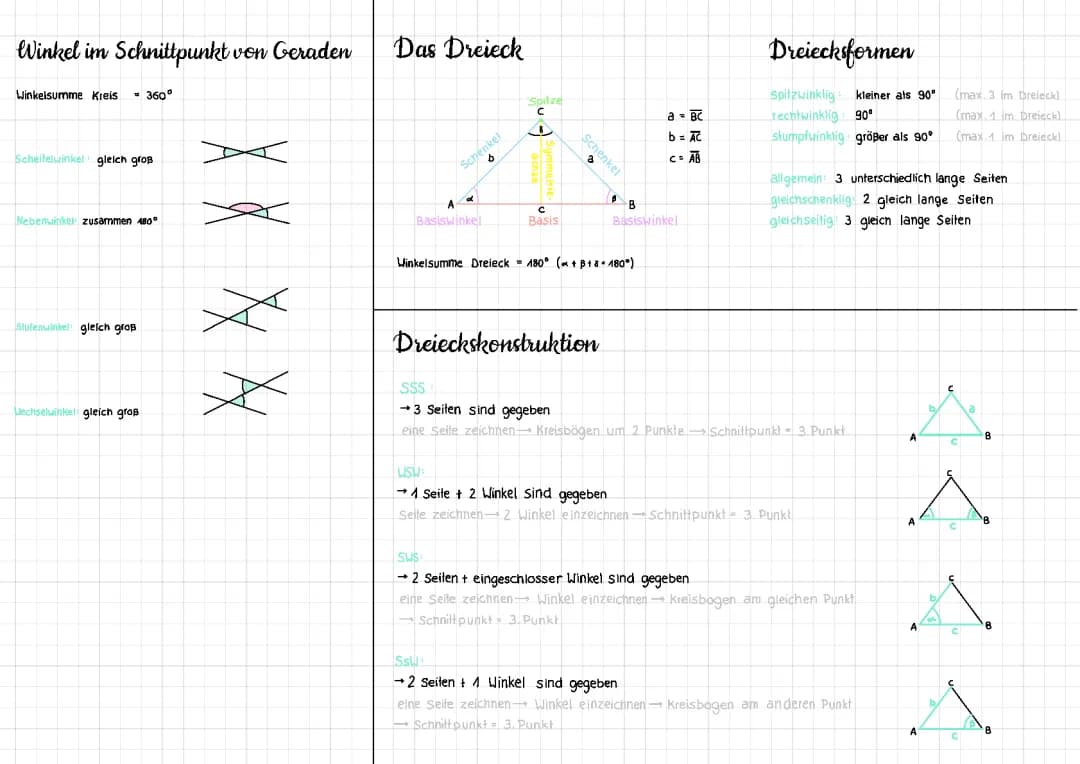 Winkel im Schnittpunkt von Geraden
Winkelsumme Kreis = 360°
Scheitelwinkel: gleich groß
Nebenwinkel: zusammen 180°
Stufenwinkel: gleich groß
Wechselwinkel: gleich groß
Das Dreieck
Spitze
C
Schenkel
b
Symmetrie-
achse
Schenkel
a
A
α
β
B
Basiswinkel
c
Basis
Basiswinkel
a = BC
b = AC
c = AB
Winkelsumme Dreieck = 180° (α + β + γ = 180°)
Dreiecksformen
spitzwinklig: kleiner als 90° (max. 3 im Dreieck)
rechtwinklig: 90° (max. 1 im Dreieck)
stumpfwinklig: größer als 90° (max. 1 im Dreieck)
allgemein: 3 unterschiedlich lange Seiten
gleichschenklig: 2 gleich lange Seiten
gleichseitig: 3 gleich lange Seiten
Dreieckskonstruktion
SSS:
→ 3 Seiten sind gegeben
eine Seite zeichnen → Kreisbögen um 2 Punkte → Schnittpunkt = 3. Punkt
C
b
a
A
c
B
WSW:
→ 1 Seite + 2 Winkel sind gegeben
Seite zeichnen → 2 Winkel einzeichnen → Schnittpunkt = 3. Punkt
C
A
α
β
B
c
SWS:
→ 2 Seiten + eingeschlosser Winkel sind gegeben
eine Seite zeichnen → Winkel einzeichnen → Kreisbogen am gleichen Punkt
→ Schnittpunkt = 3. Punkt
C
b
A
α
c
B
SsW:
→ 2 Seiten + 1 Winkel sind gegeben
eine Seite zeichnen → Winkel einzeichnen → Kreisbogen am anderen Punkt
→ Schnittpunkt = 3. Punkt
C
b
A
β
c
B